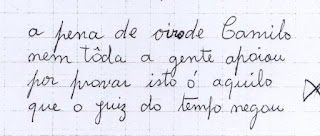 a pena de oiro de Camilo
nem tôda a gente apoiou
por provar isto ó aquilo
que o juiz do tempo negou